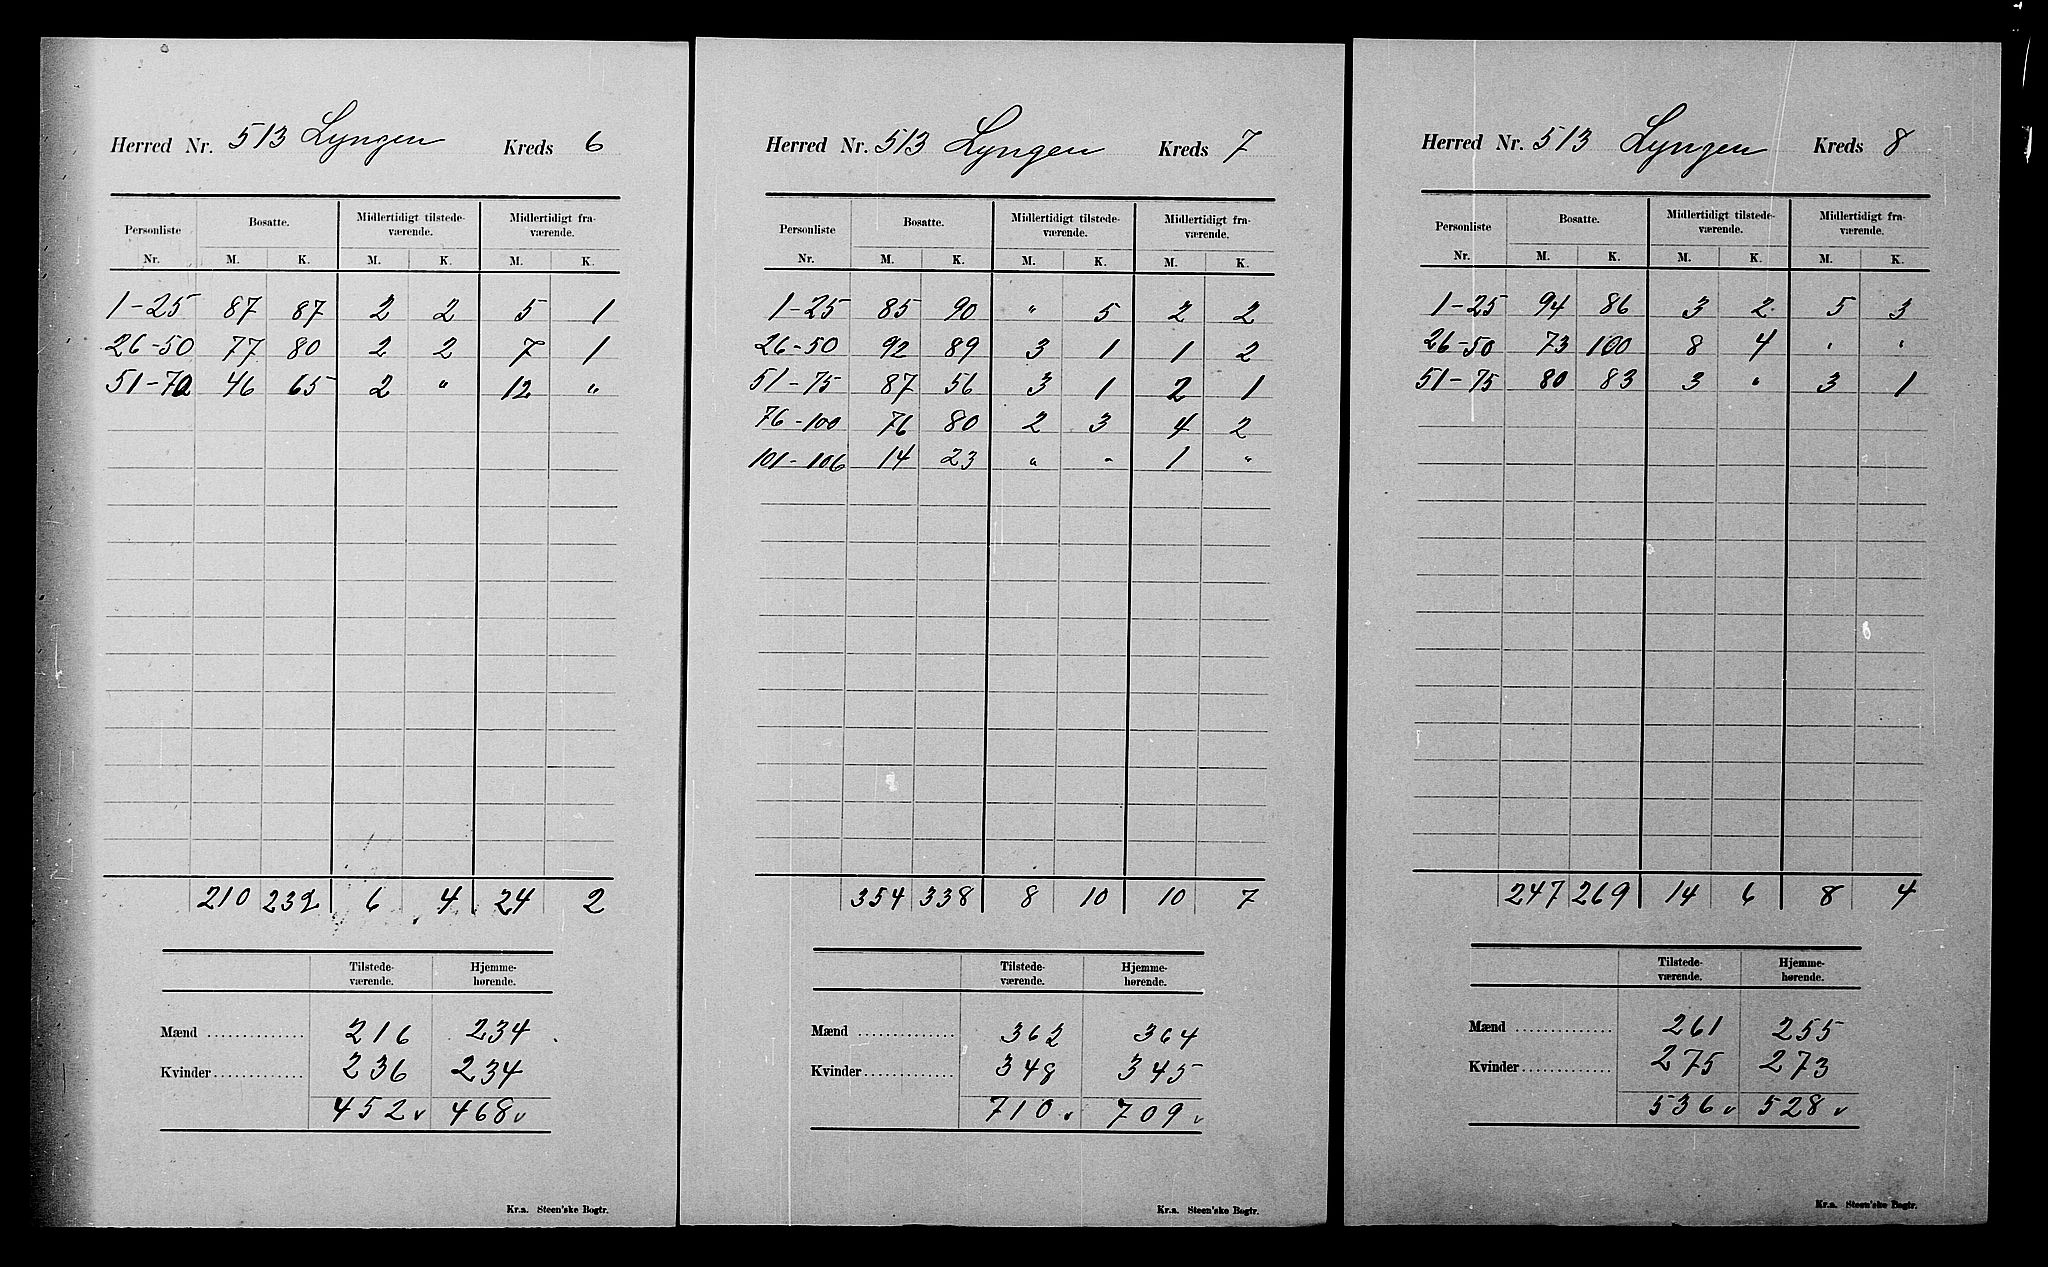 Herred Nr. 513 Lyngen Kreds 6
Personliste Bosatte. Midlertidigt tilstede-værende. Midlertidigt fra-værende.
Nr. M. K. M. K. M. K.
1-25 87 87 2 2 5 1
26-50 77 80 2 2 7 1
51-70 46 65 2 " 12 "
210 232 6 4 24 2
Tilstede-værende. Hjemme-hørende.
Mænd 216 234
Kvinder 236 234
452 v 468 v
Kr.a. Steen'ske Bogtr.
Herred Nr. 513 Lyngen Kreds 7
Personliste Bosatte. Midlertidigt tilstede-værende. Midlertidigt fra-værende.
Nr. M. K. M. K. M. K.
1-25 85 90 " 5 2 2
26-50 92 89 3 1 1 2
51-75 87 56 3 1 2 1
76-100 76 80 2 3 4 2
101-106 14 23 " " 1 "
354 338 8 10 10 7
Tilstede-værende. Hjemme-hørende.
Mænd 362 364
Kvinder 348 345
710 v 709 v
Kr.a. Steen'ske Bogtr.
Herred Nr. 513 Lyngen Kreds 8
Personliste Bosatte. Midlertidigt tilstede-værende. Midlertidigt fra-værende.
Nr. M. K. M. K. M. K.
1-25 94 86 3 2 5 3
26-50 73 100 8 4 " "
51-75 80 83 3 " 3 1
247 269 14 6 8 4
Tilstede-værende. Hjemme-hørende.
Mænd 261 255
Kvinder 275 273
536 v 528 v
Kr.a. Steen'ske Bogtr.